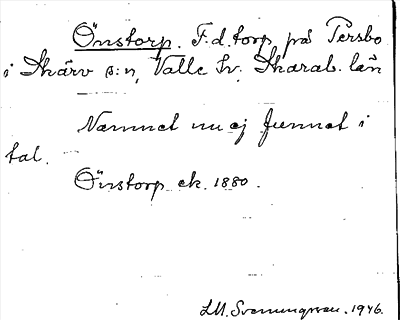 Önstorp. F.d. torp på Persbo
i Skärv s:n, Valle hr. Skarab. län
Namnet nu ej funnet i
tal.
Önstorp ek. 1880.
I.M. Svenningsson. 1946.